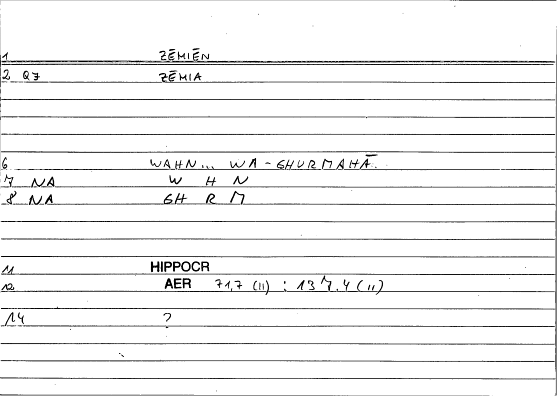 1 ZĒMIĒN
2 Q7 ZĒMIA
6 WAHN... WA-GHURMAHĀ.
7 NA W H N
8 NA GH R M
11 HIPPOCR
12 AER 71,7 (11) : 137.4 (11)
14 ?